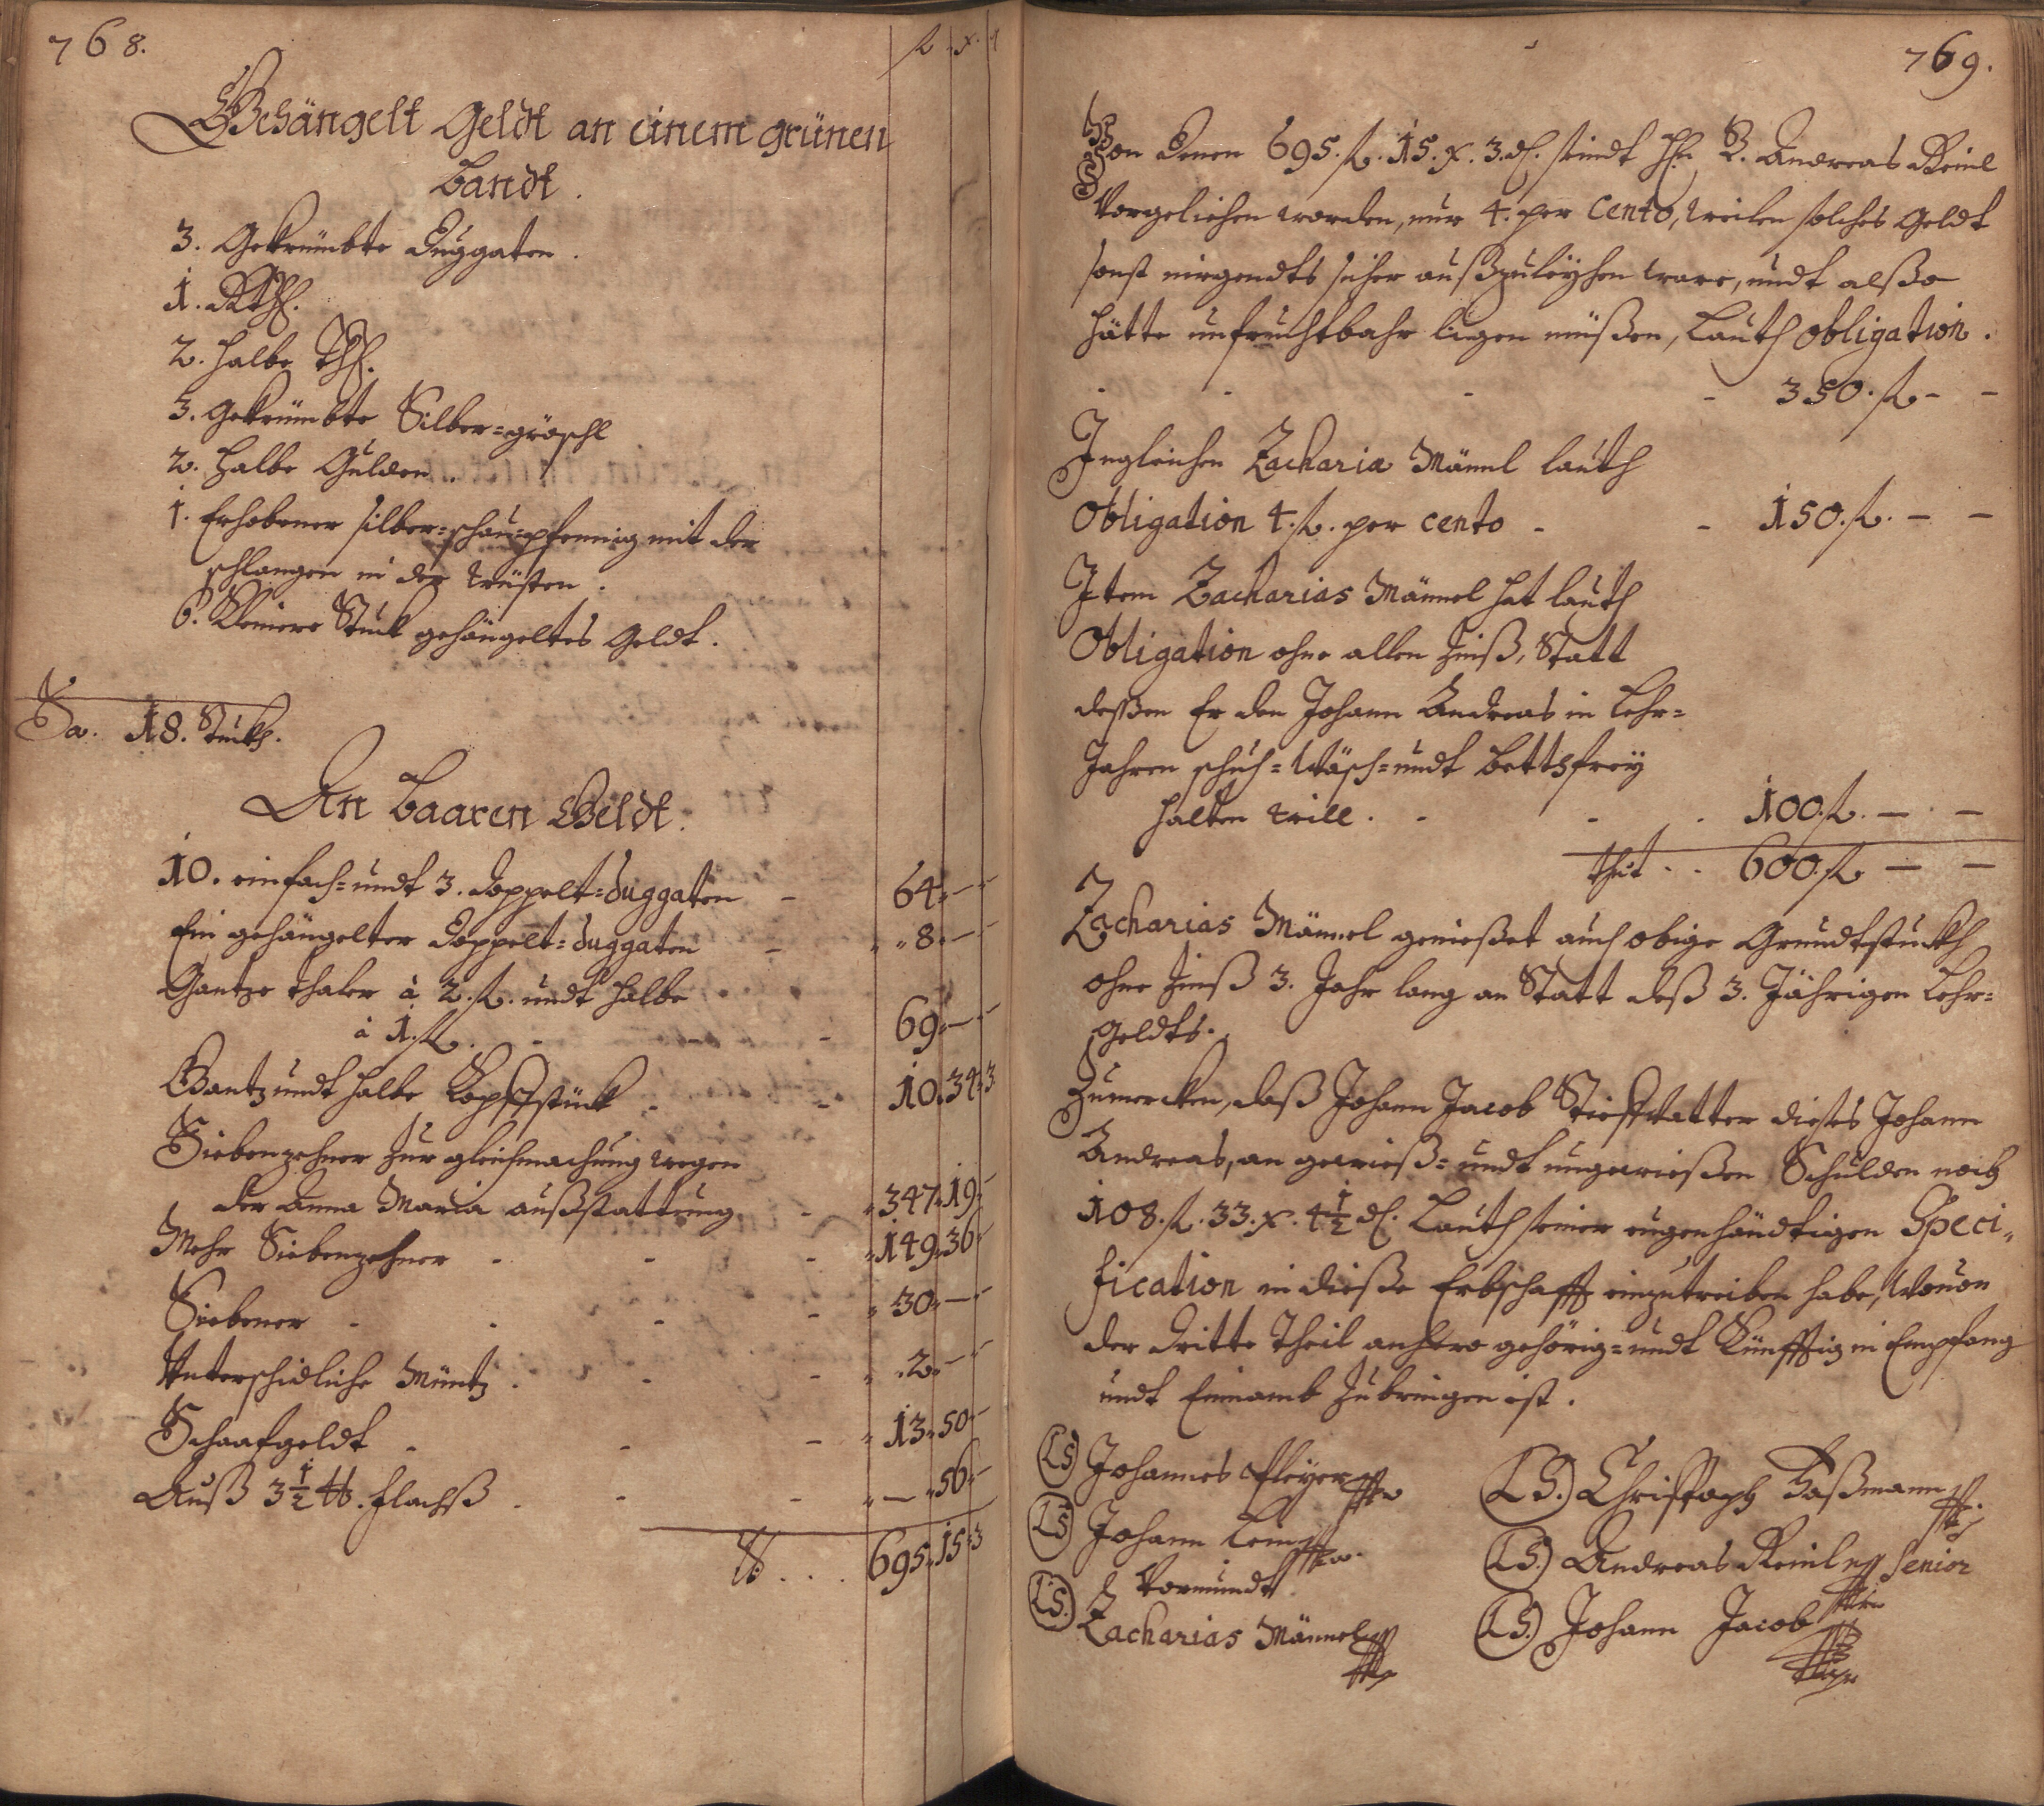 768.
fl. x. ₰
Gehängelt Geldt an einem grünen
Bandt.
3. Gekrümbte Duggaten.
1. Rthl.
2. halbe Thl.
3. gekrümbte Silber=gröschl
2. halbe Gulden.
1. Erhobener silber=schau=pfennig mit der
schlangen in der wüsten.
6. Kleinere Stuck gehängeltes Geldt.
Sa. 18. Stuckh.
An Baaren Geldt.
10. einfach= undt 3. doppelt=duggaten - 64 - -
Ein gehängelter Doppelt=duggaten - 8 - -
Gantze thaler à 2. fl. undt halbe
à 1. fl. - - 69 - -
Gantz undt halbe Kopfstück - - 10. 34. 3
Siebenzehner zur gleichmachung wegen
der Anna Maria außstattung - 347. 19 -
Mehr Siebenzehner - - - 149. 36 -
Siebener - - - - 30 - -
Unterschidliche Müntz - - - 2 - -
Schaafgeldt - - - 13. 50 -
Auß 3½ ℔. flachß - - - - 56 -
... 695. 15. 3
769.
Von denen 695. fl. 15. x. 3. ₰. seindt H. Andreas Reinl
Vorgeliehen worden, nur 4. per Cento, weilen solches Geldt
sonst nirgendts sicher außzuleyhen ware, undt alßo
hätte unfruchtbahr ligen müßen, Lauth obligation.
- - - - 350. fl. - -
Ingleichen Zacharia Männl lauth
Obligation 4. fl. per cento - - 150. fl. - -
Item Zacharias Männel hat lauth
Obligation ohne allen Zinß, Statt
deßen Er den Johann Andreas in Lehr=
Jahren schuh= Wäsch= undt bettsfrey
halten will. - - . 100. fl. - -
thut . . 600. fl. - -
Zacharias Männel genießet auch obige Grundtstuckh
ohne Zinß 3. Jahr lang an Statt deß 3. Jährigen Lehr=
geldts.
Zumercken, daß Johann Jacob Stieffvatter dieses Johann
Andreas, an gewieß= undt ungewießen Schulden noch
108. fl. 33. x. 4½ ₰. Lauth seiner eugenhändtigen Speci=
fication in dieße Erbschafft einzutreiben habe, Wovon
der dritte Theil anhero gehörig= undt Künfftig in Empfang
undt Einnamb zubringen ist.
(LS) Johannes Fleyer
(LS.) Christoph Haßmann
(LS) Johann
Vormundt
(LS.) Andreas Reinl Senior
(LS.) Zacharias Männel
(LS.) Johann Jacob